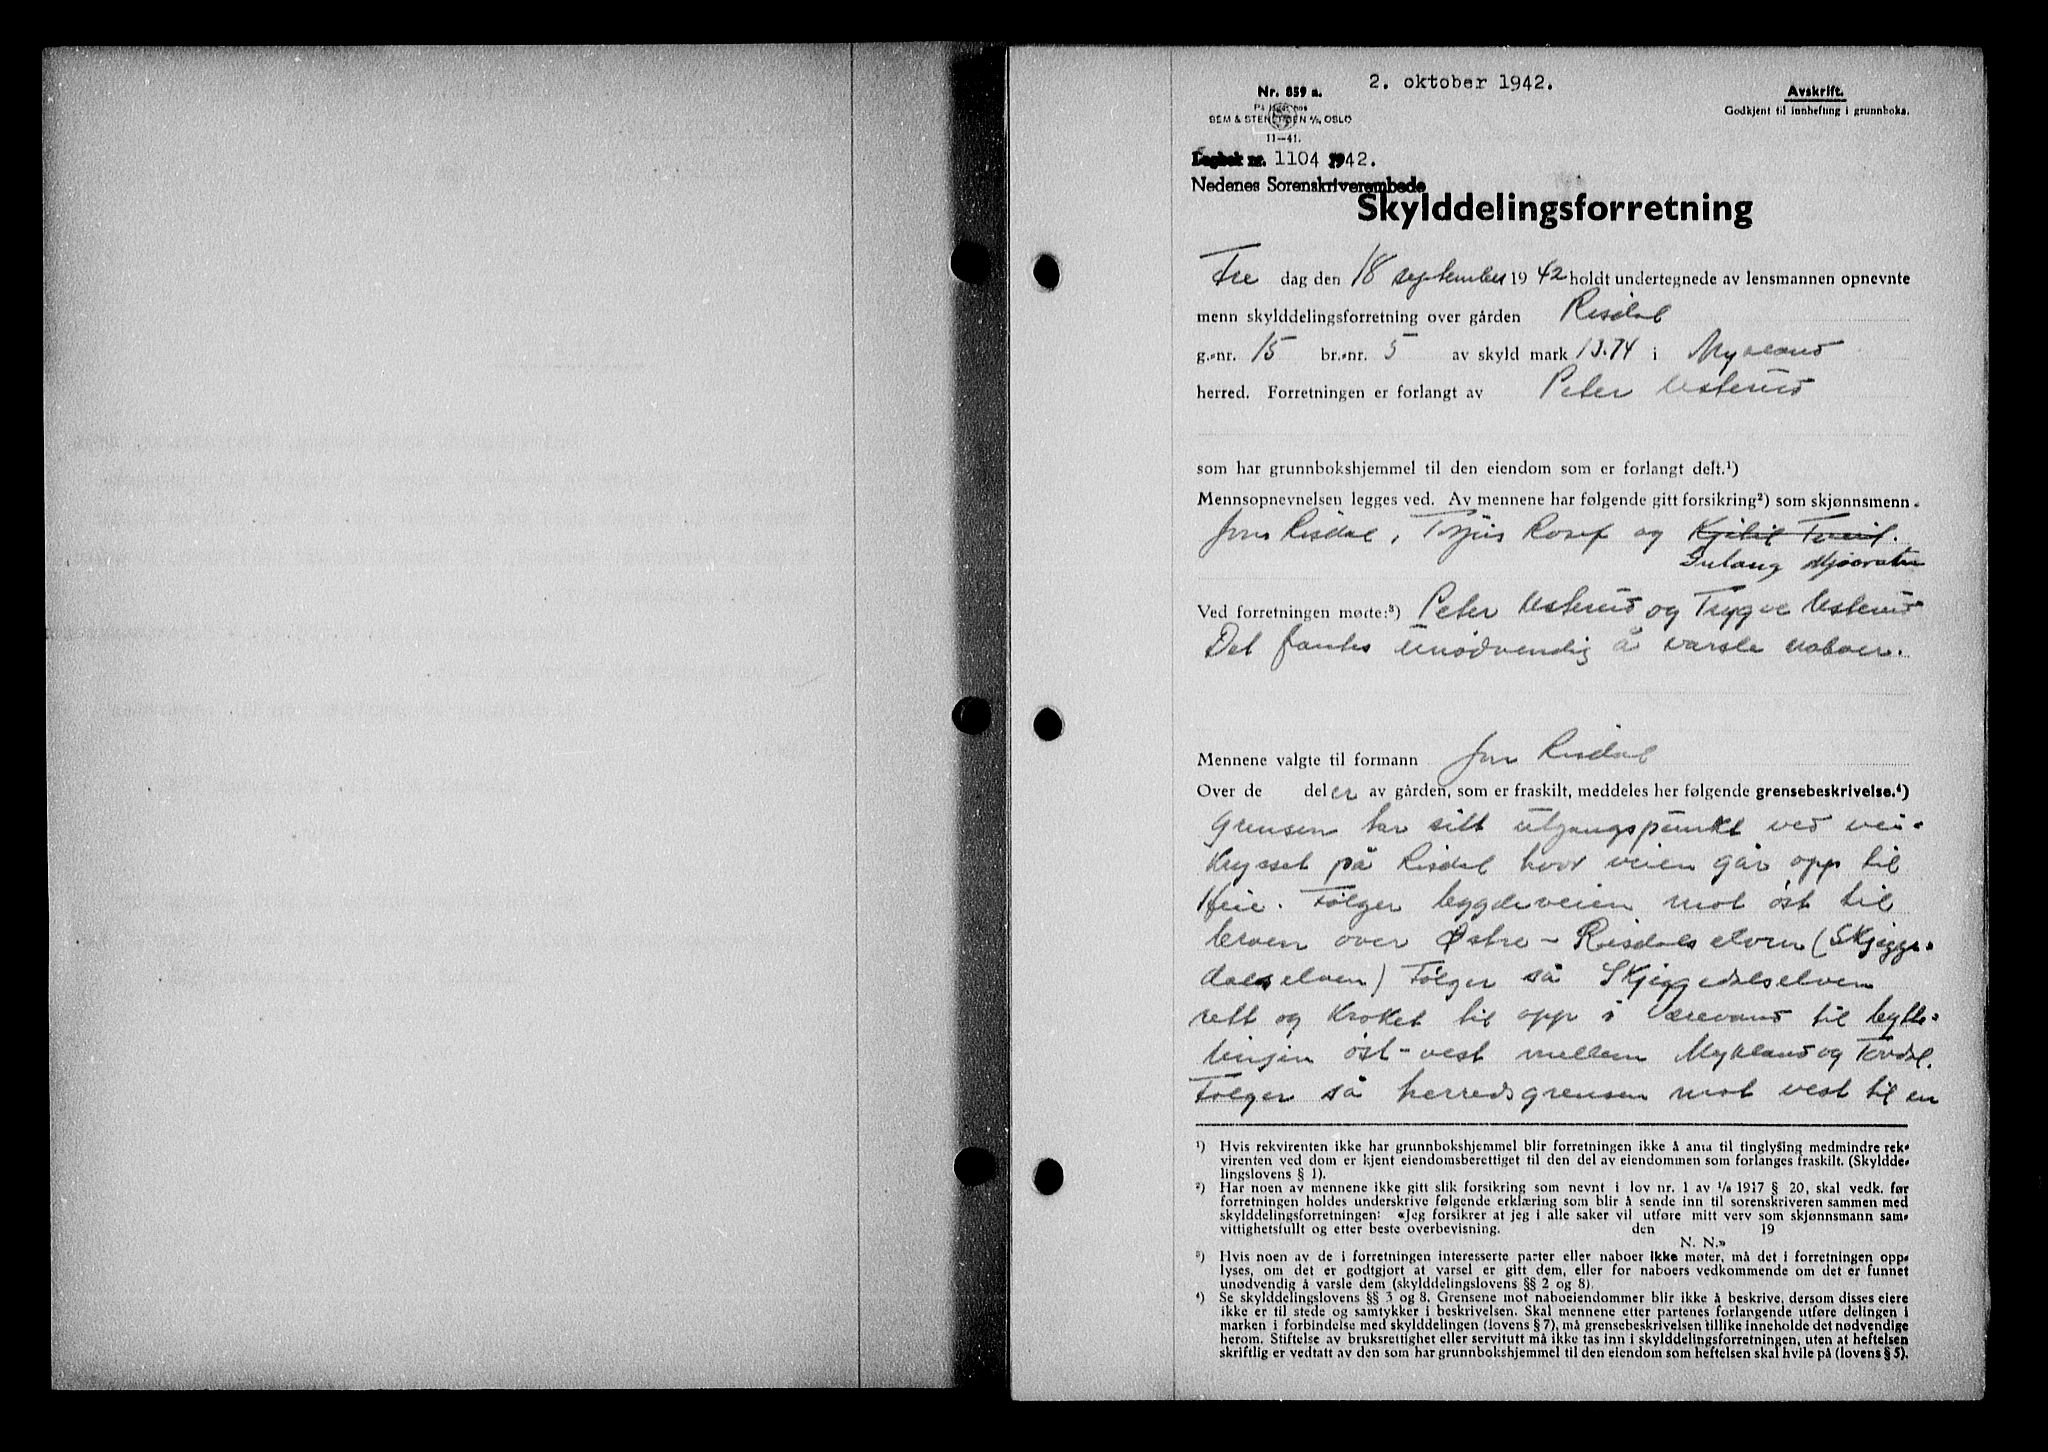 2. oktober 1942.
Nr. 859 a.
Avskrift.
Godkjent til innheftung i grunnboka.
SEM & STENERSEN A/S, OSLO
11-41.
Dagbok nr. 1104 1942.
Nedenes Sorenskriverembede
Skylddelingsforretning
Fre dag den 18 september 1942 holdt undertegnede av lensmannen opnevnte
menn skylddelingsforretning over gården Risdal
g.-nr. 15 br.-nr. 5 av skyld mark 13.74 i Mykland
herred. Forretningen er forlangt av Peter Usterud
som har grunnbokshjemmel til den eiendom som er forlangt delt.¹)
Mennsopnevnelsen legges ved. Av mennene har følgende gitt forsikring²) som skjønnsmenn.
Jon Risdal, Torjus Rosef og Kjetil Tveit.
Gulaug
Ved forretningen møtte:³) Peter Usterud og Trygve Usterud
Det fantes unødvendig å varsle naboer.
Mennene valgte til formann Jon Risdal
Over de del er av gården, som er fraskilt, meddeles her følgende grensebeskrivelse.⁴)
Grensen har sitt utgangspunkt ved vei-
krysset på Risdal hvor veien går opp til
Heie. Følger bygdeveien mot øst til
broen over Østre-Risdalselven (Skjegge-
dalselven) Følger så Skjeggedalselven
rett og kroket til opp i Værevand til bytte-
linjen øst-vest mellem Mykland og Tovdal.
Følger så herredsgrensen mot vest til en
¹) Hvis rekvirenten ikke har grunnbokshjemmel blir forretningen ikke å anta til tinglysing medmindre rek-
virenten ved dom er kjent eiendomsberettiget til den del av eiendommen som forlanges fraskilt. (Skyldde-
lingslovens § 1).
²) Har noen av mennene ikke gitt slik forsikring som nevnt i lov nr. 1 av 1/6 1917 § 20, skal vedk. før
forretningen holdes underskrive følgende erklæring som blir å sende inn til sorenskriveren sammen med
skylddelingsforretningen: «Jeg forsikrer at jeg i alle saker vil utføre mitt verv som skjønnsmann sam-
vittighetsfullt og etter beste overbevisning. den 19
N. N.»
³) Hvis noen av de i forretningen interesserte parter eller naboer ikke møter, må det i forretningen opp-
lyses, om det er godtgjort at varsel er gitt dem, eller for naboers vedkommende om det er funnet
unødvendig å varsle dem (skylddelingslovens §§ 2 og 8).
⁴) Se skylddelingslovens §§ 3 og 8. Grensene mot naboeiendommer blir ikke å beskrive, dersom disses eiere
ikke er til stede og samtykker i beskrivelsen. Skal mennene etter partenes forlangende utføre delingen i
marken i forbindelse med skylddelingen (lovens § 7), må grensebeskrivelsen tillike inneholde det nødvendige
herom. Stiftelse av bruksrettighet eller servitutt må ikke tas inn i skylddelingsforretningen, uten at heftelsen
skriftlig er vedtatt av den som har grunnbokshjemmel til den eiendom som heftelsen skal hvile på (lovens § 5).